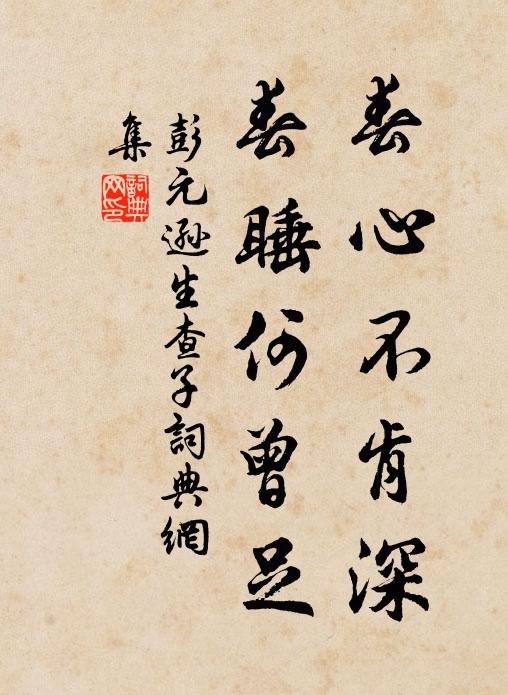 春心不肯深
春睡何曾足
彭元遜生查子詞典網
集
詞典
網印